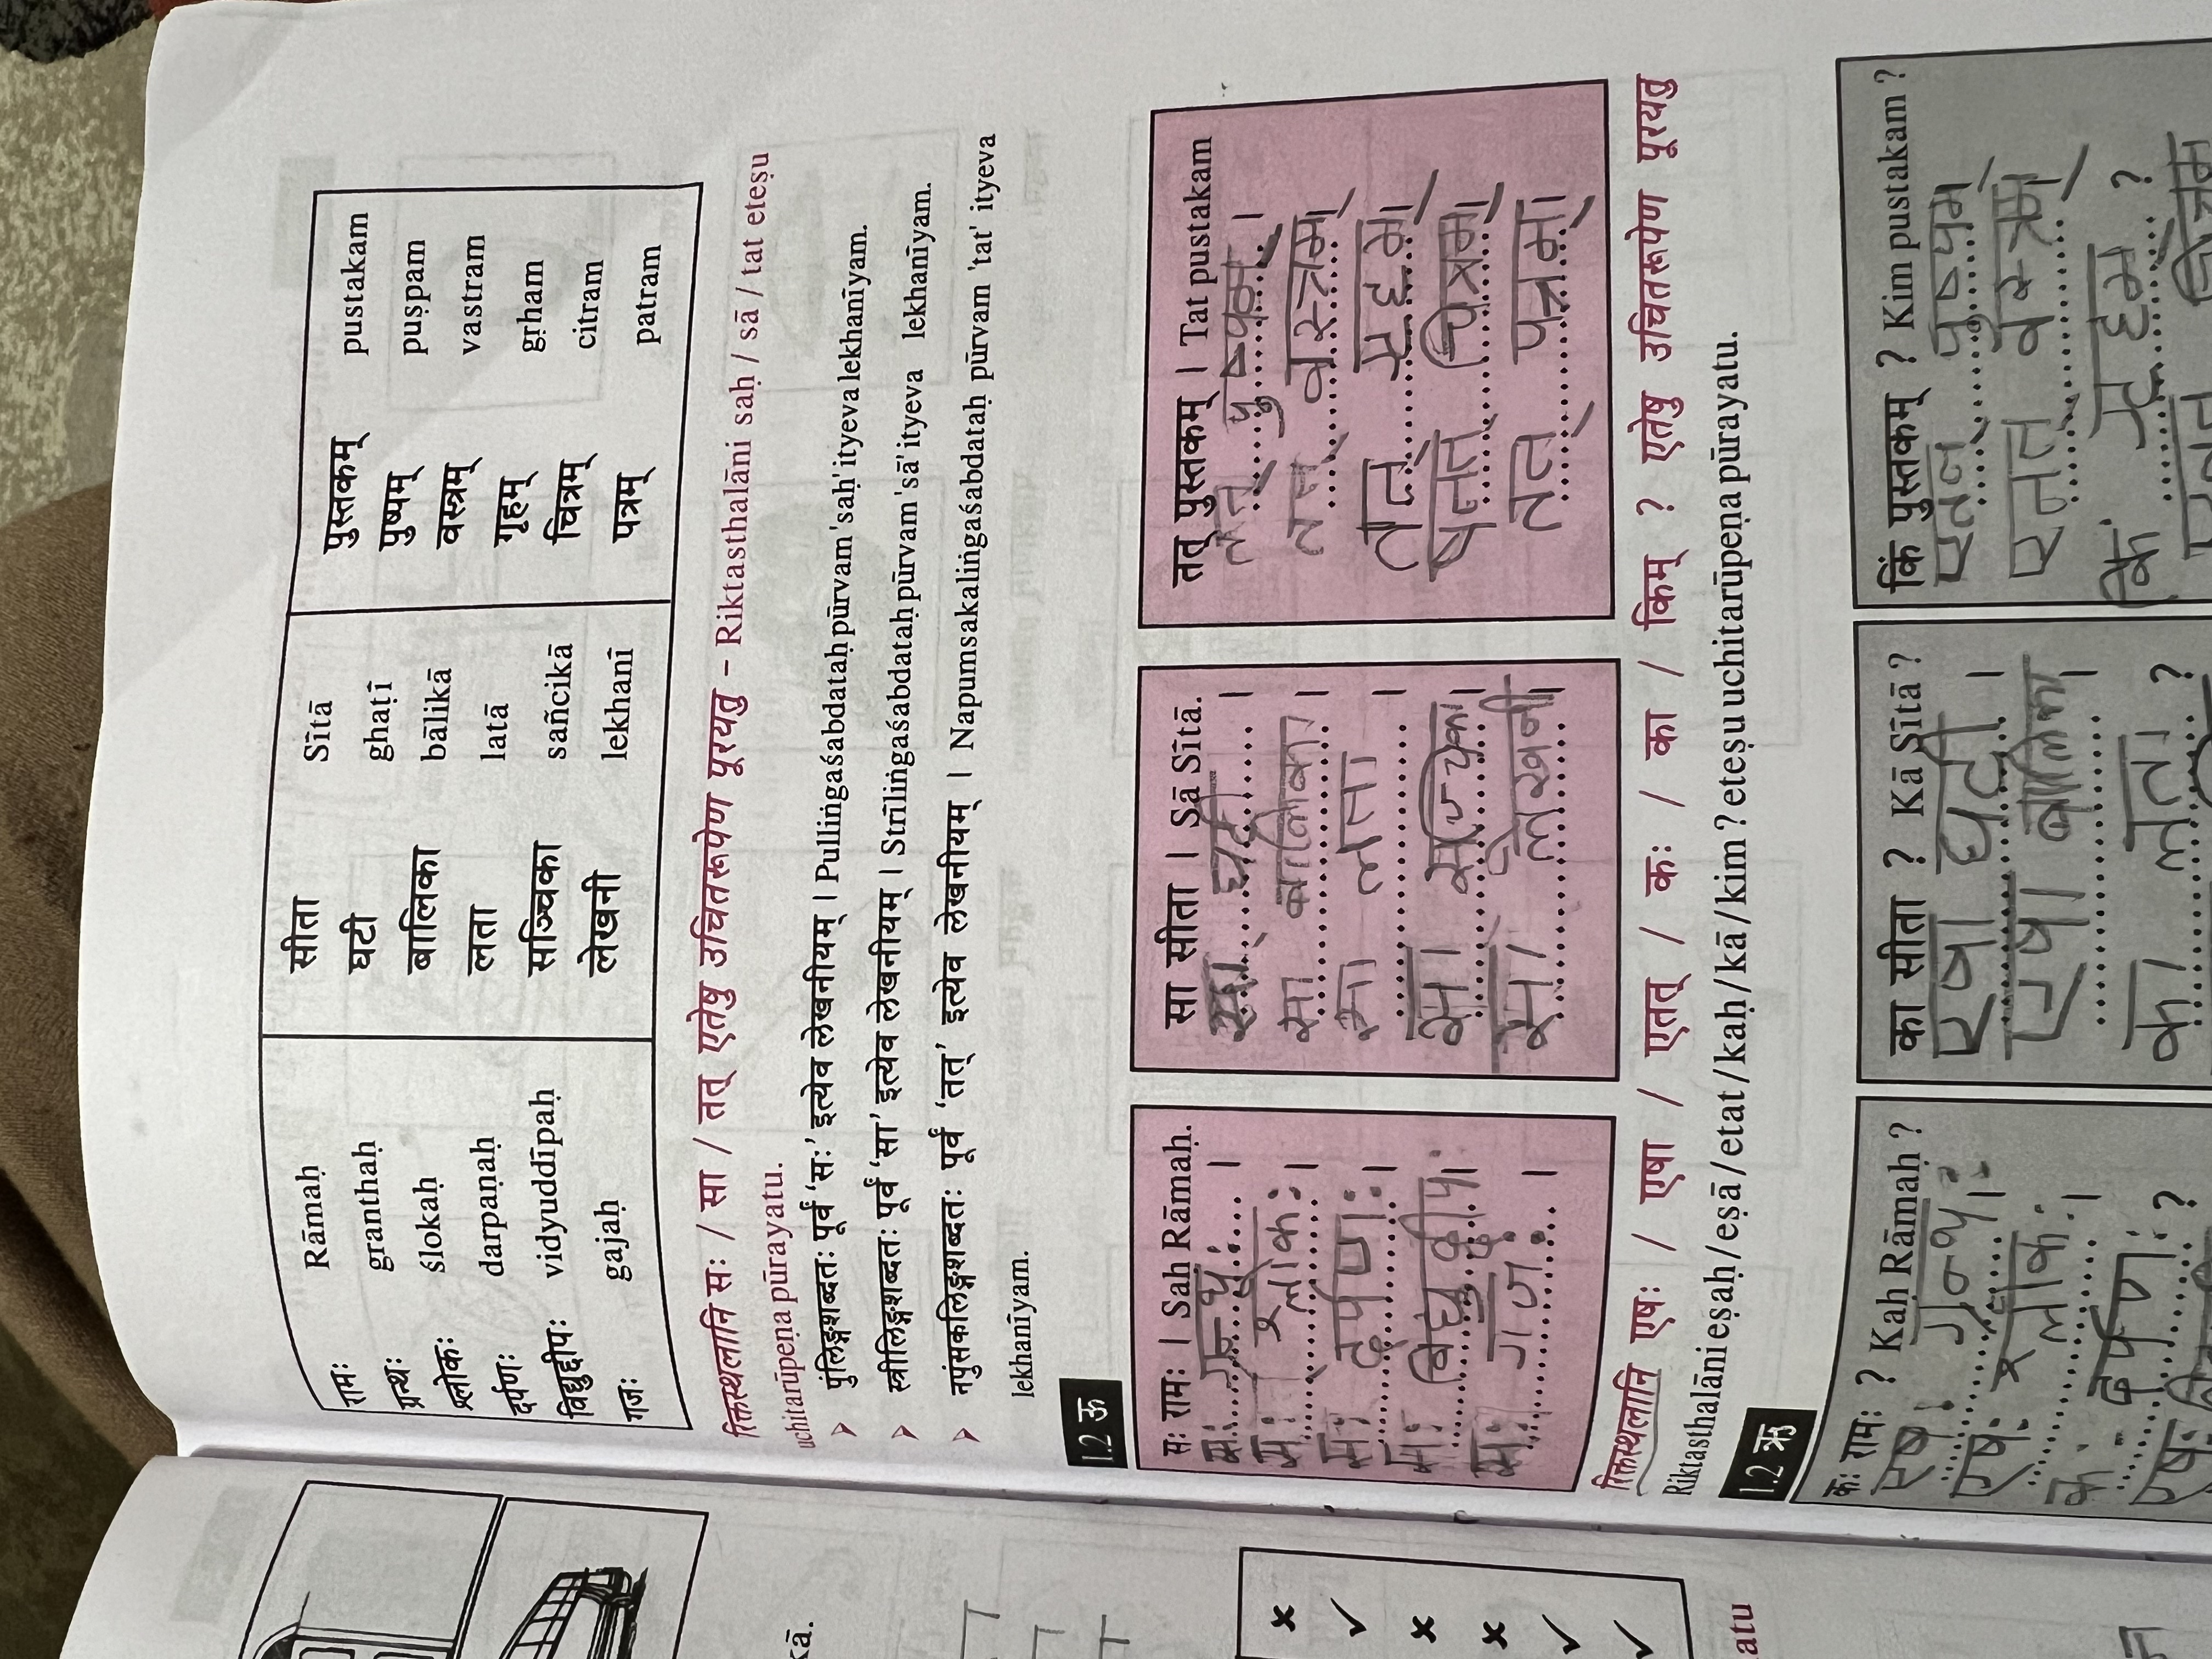 रामः Rāmaḥ सीता Sītā पुस्तकम् pustakam
ग्रन्थः granthaḥ घटी ghaṭī पुष्पम् puṣpam
श्लोकः ślokaḥ बालिका bālikā वस्त्रम् vastram
दर्पणः darpaṇaḥ लता latā गृहम् gṛham
विद्युद्दीपः vidyuddīpaḥ सञ्चिका sañcikā चित्रम् citram
गजः gajaḥ लेखनी lekhanī पत्रम् patram
रिक्तस्थलानि सः / सा / तत् एतेषु उचितरूपेण पूरयतु – Riktasthalāni saḥ / sā / tat eteṣu
uchitarūpeṇa pūrayatu.
पुंलिङ्गशब्दतः पूर्वं ‘सः’ इत्येव लेखनीयम् । Pulliṅgaśabdataḥ pūrvam 'saḥ' ityeva lekhanīyam.
स्त्रीलिङ्गशब्दतः पूर्वं ‘सा’ इत्येव लेखनीयम् । Strīliṅgaśabdataḥ pūrvam 'sā' ityeva lekhanīyam.
नपुंसकलिङ्गशब्दतः पूर्वं ‘तत्’ इत्येव लेखनीयम् । Napumsakaliṅgaśabdataḥ pūrvam 'tat' ityeva
lekhanīyam.
1.2 ऊ
सः रामः । Saḥ Rāmaḥ.
सः ग्रन्थः ।
सः श्लोकः ।
सः दर्पणः ।
सः
सः गजः ।
सा सीता । Sā Sītā.
सा घटी ।
सा बालिका ।
सा लता ।
सा सञ्चिका ।
सा लेखनी ।
तत् पुस्तकम् । Tat pustakam
तत् पुष्पम् ।
तत् वस्त्रम् ।
तत्
चित्रम् ।
तत् पत्रम् ।
रिक्तस्थलानि एषः / एषा / एतत् / कः / का / किम् ? एतेषु उचितरूपेण पूरयतु
Riktasthalāni eṣaḥ / eṣā / etat / kaḥ / kā / kim ? eteṣu uchitarūpeṇa pūrayatu.
1.2 ऋ
कः रामः ? Kaḥ Rāmaḥ ?
एषः ग्रन्थः ।
एषः श्लोकः ।
कः दर्पणः ?
एषः
का सीता ? Kā Sītā ?
एषा घटी ।
एषा बालिका ।
का लता ?
किं पुस्तकम् ? Kim pustakam ?
एतत् पुष्पम्
एतत् वस्त्रम्
किं ?
एतत् चित्रम्
kā.
atu